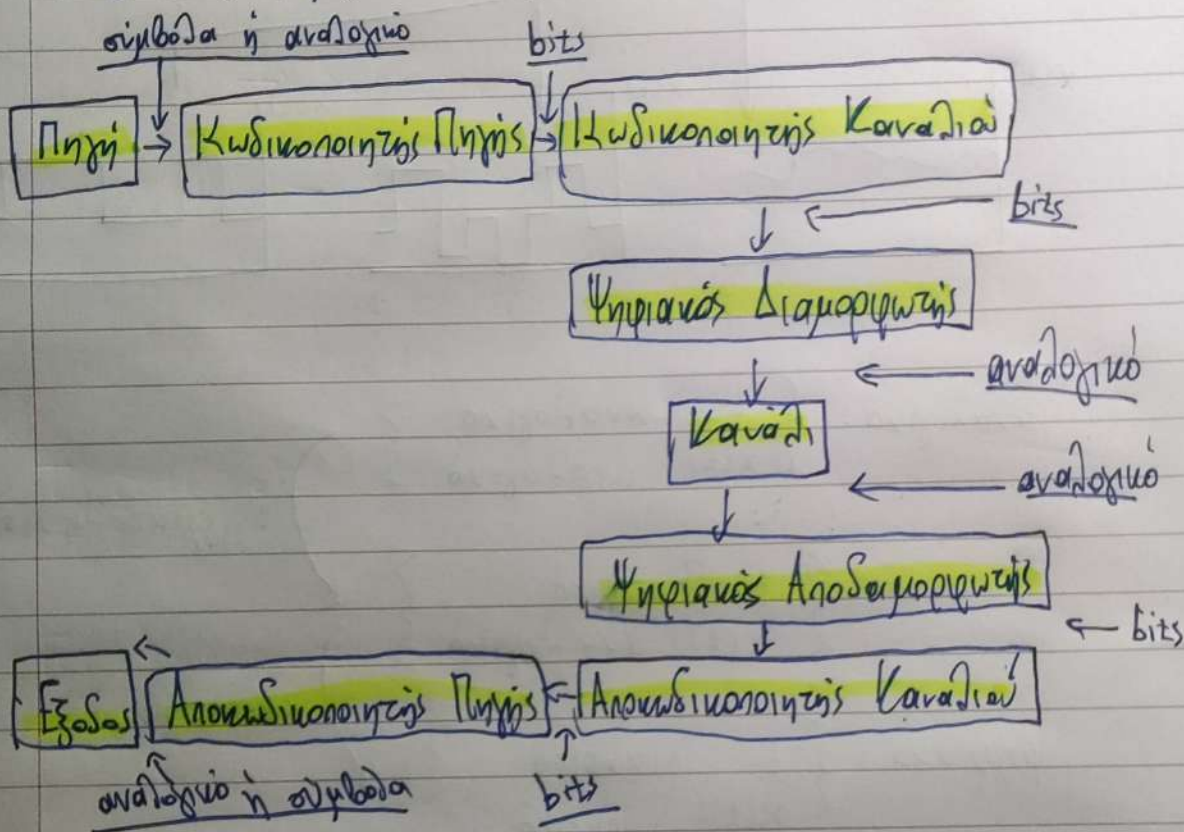 σύμβολα ή αναλογικό
bits
Πηγή
Κωδικοποιητής Πηγής
Κωδικοποιητής Καναλιού
bits
Ψηφιακός Διαμορφωτής
αναλογικό
Κανάλι
αναλογικό
Ψηφιακός Αποδαμορφωτής
bits
Έξοδος
Αποκωδικοποιητής Πηγής
Αποκωδικοποιητής Καναλιού
αναλογικό ή σύμβολα
bits